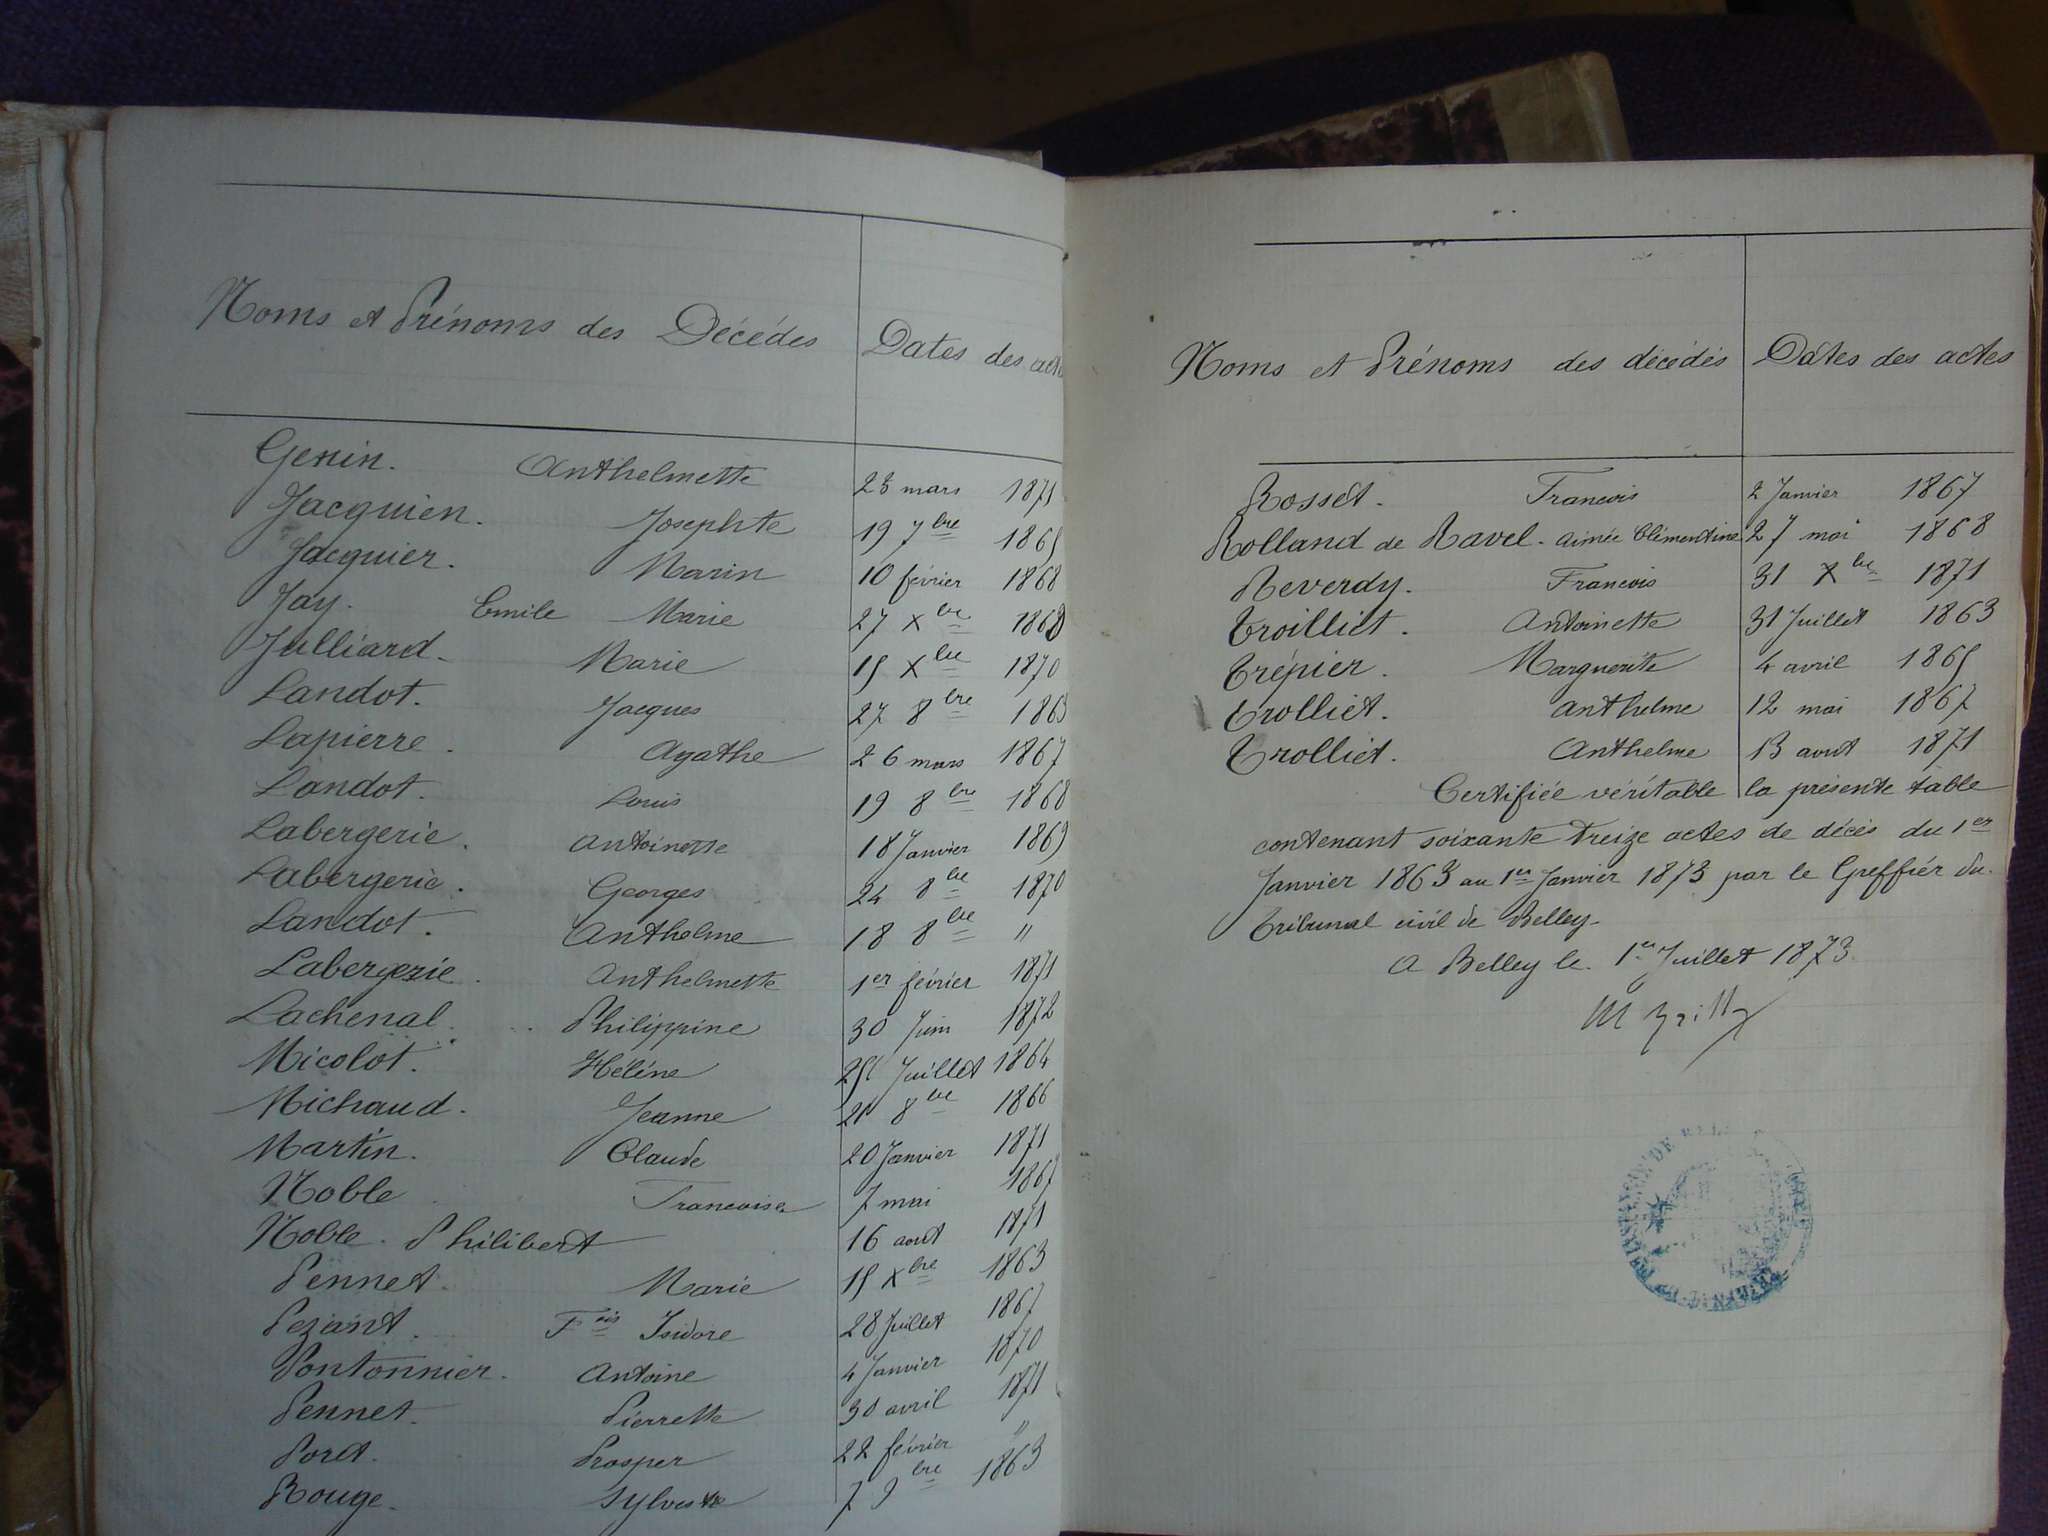 Noms et Prénoms des Décédés Dates des act
Genin. Anthelmette 28 mars 1871
Jacquien. Josephte 19 7bre 1865
Jacquier. Marin 10 février 1868
Jay. Emile Marie 27 Xbre 1868
Julliard. Marie 15 Xbre 1870
Landot. Jacques 27 8bre 1863
Lapierre. Agathe 26 mars 1867
Landot. Louis 19 8bre 1868
Labergerie. Antoinette 18 Janvier 1869
Labergerie. Georges 24 8bre 1870
Landot. Anthelme 18 8bre "
Labergerie. Anthelmette 1er février 1871
Lachenal. Philippine 30 Juin 1872
Micolot. Hélène Juillet 1864
Michaud. Jeanne 8bre 1866
Martin. Claude 20 Janvier 1871
Noble Francoise 7 mai 1867
Noble. Philibert 16 aout 1871
Pennet. Marie 15 Xbre 1863
Pezant. Fois Isidore 28 Juillet 1867
Pontonnier. Antoine 4 Janvier 1870
Pennet. Pierrette 30 avril 1871
Poret. Prosper 22 février "
Rouge. Sylvestre 7 9bre 1863
Noms et Prénoms des décédés Dates des actes
Rosset. Francois 2 Janvier 1867
Rolland de Ravel. Aimée Clémentine 27 mai 1868
Reverdy. Francois 31 Xbre 1871
Troilliet. Antoinette 31 Juillet 1863
Trépier. Marguerite 4 avril 1865
Trolliet. Anthelme 12 mai 1867
Trolliet. Anthelme 13 aout 1871
Certifiée véritable la présente table
contenant soixante treize actes de décès du 1er
Janvier 1863 au 1er Janvier 1873 par le Greffier du
Tribunal civil de Belley.
A Belley le 1er Juillet 1873.